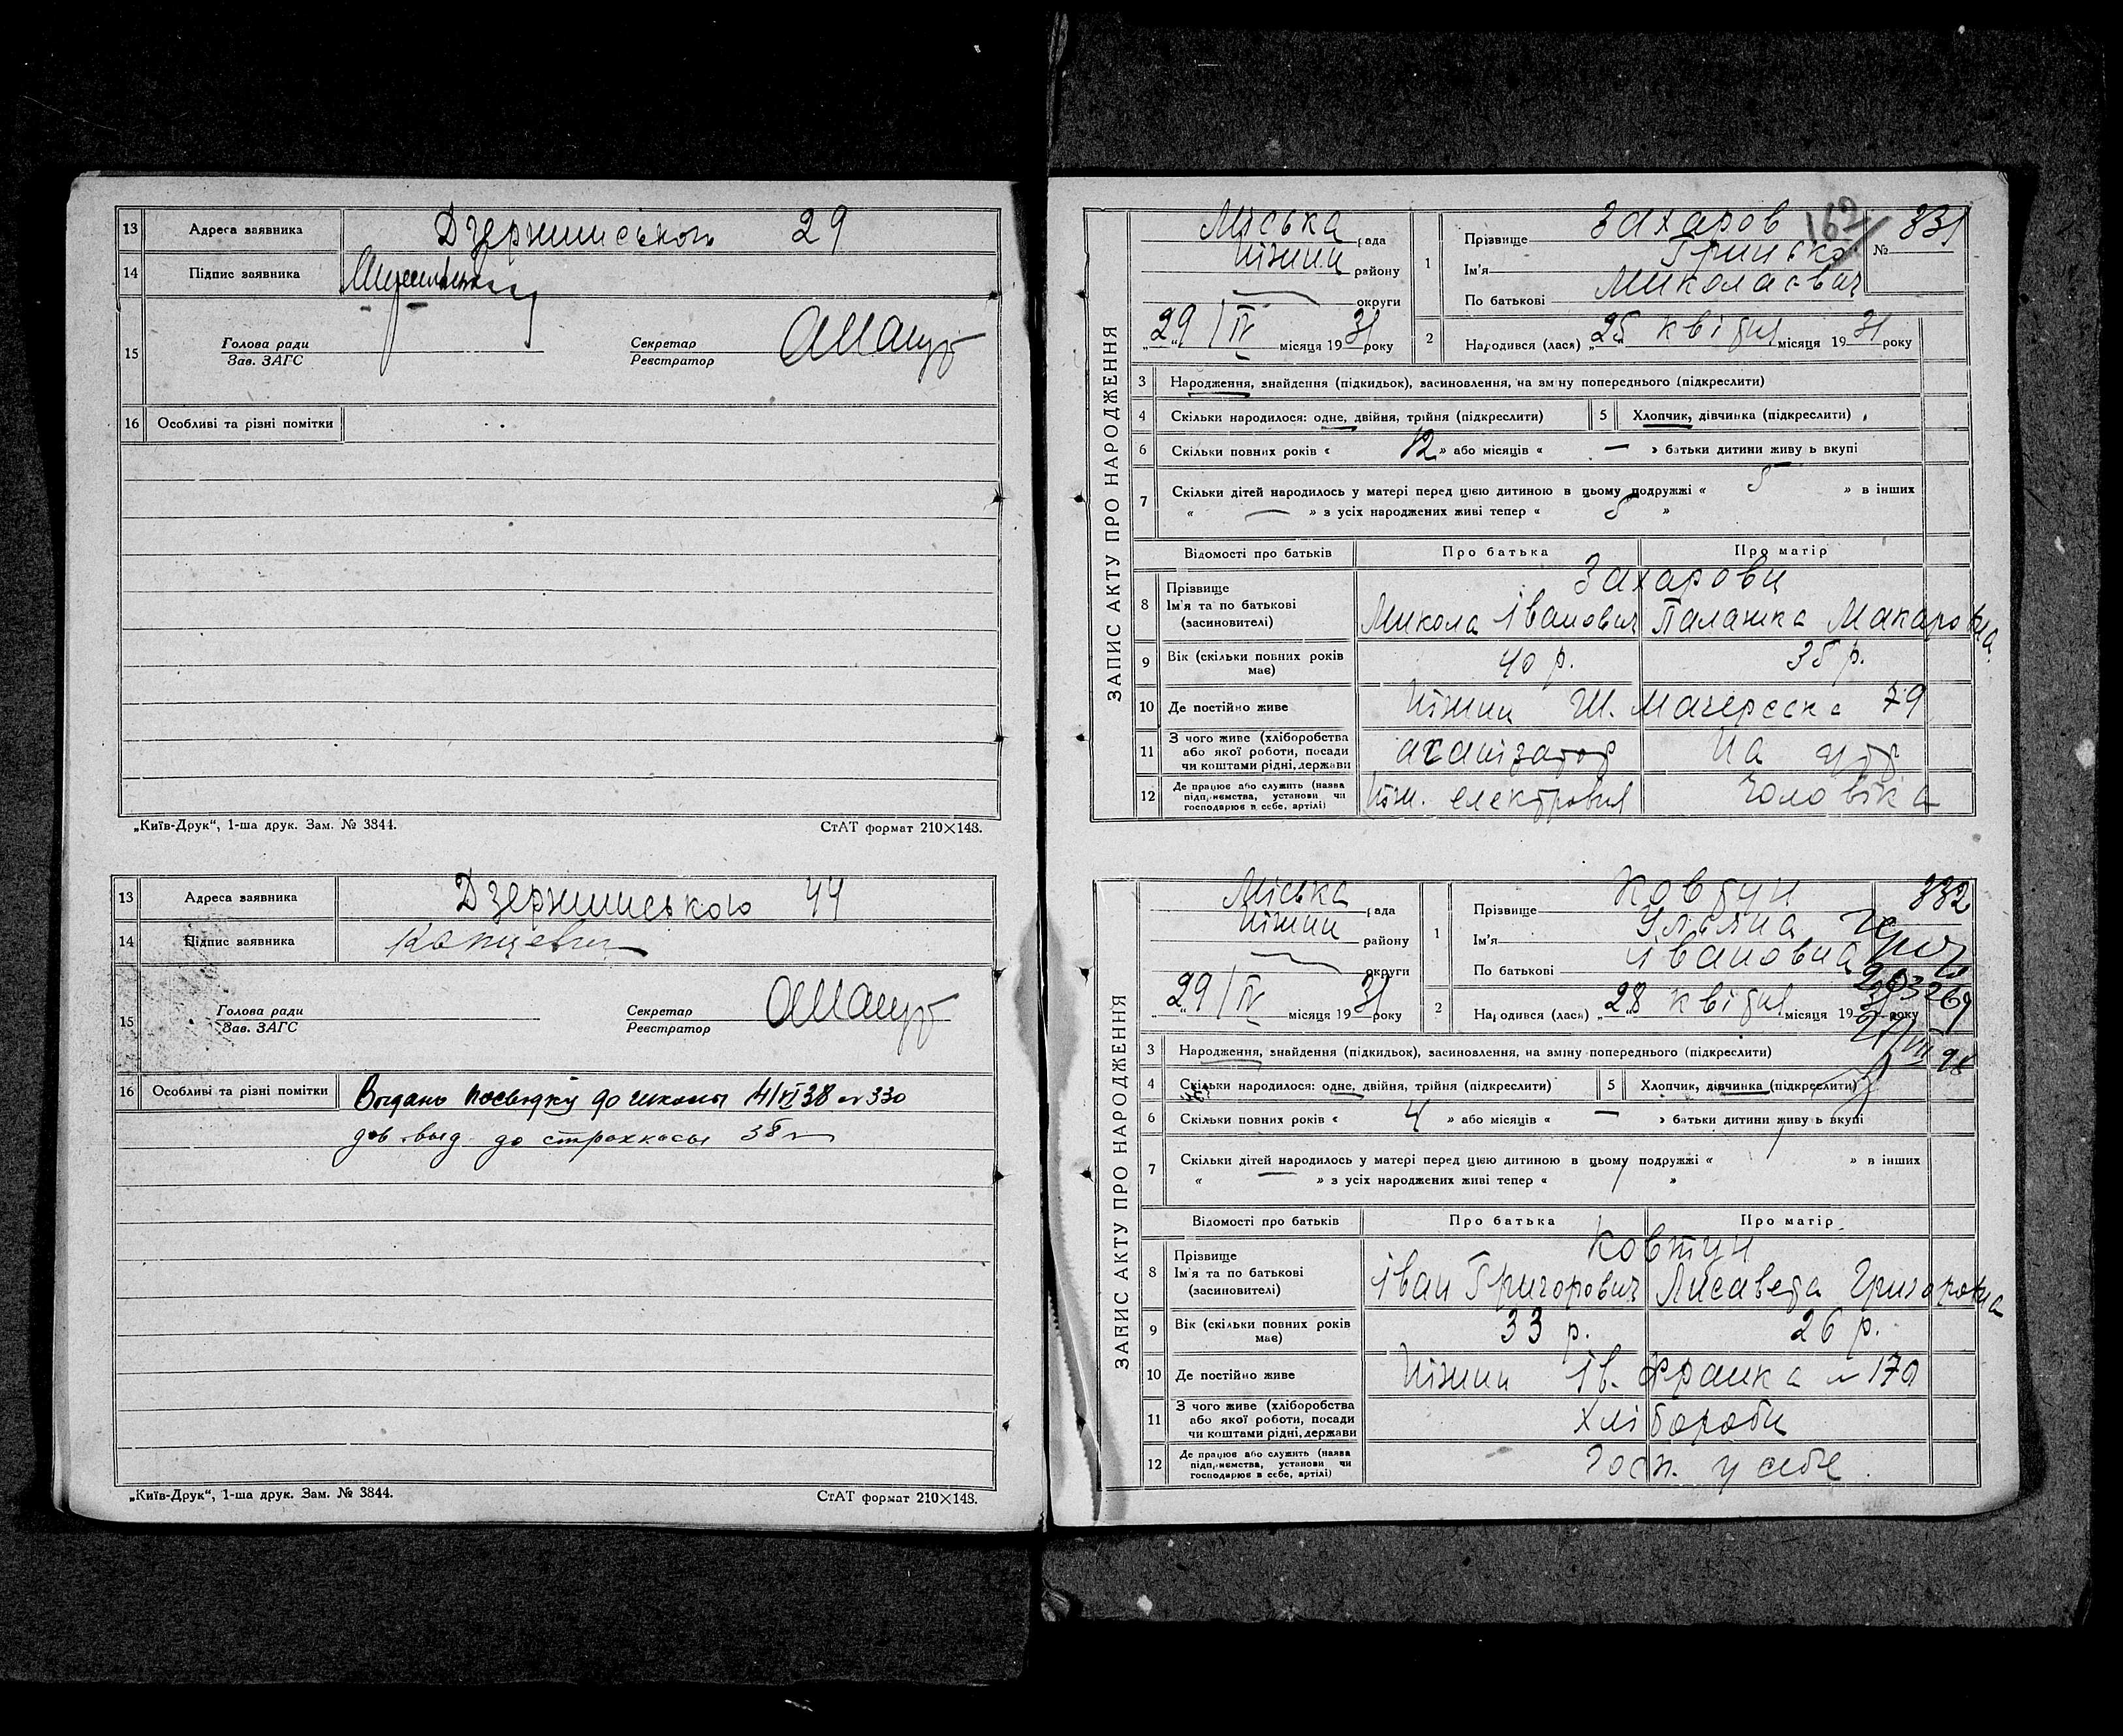 13 Адреса заявника Дзержинського 29
14 Підпис заявника
15 Голова ради
Зав. ЗАГС
Секретар
Реєстратор
16 Особливі та різні помітки
„Київ-Друк“, 1-ша друк. Зам. № 3844. СтАТ формат 210×148.
13 Адреса заявника Дзержинського 44
14 Підпис заявника
15 Голова ради
Зав. ЗАГС
Секретар
Реєстратор
16 Особливі та різні помітки Видано посвідку до школи 14/VI 38 № 330
дов. выд. до страхкассы 38 г
„Київ-Друк“, 1-ша друк. Зам. № 3844. СтАТ формат 210×148.
ЗАПИС АКТУ ПРО НАРОДЖЕННЯ
162
Міська рада
Ніжин району
округи
„29“ IV місяця 1931 року
1 Прізвище Захаров
Ім'я Гринько
По батькові Миколаєвич
№ 331
2 Народився (лася) „25 квітня місяця 1931 року
3 Народження, знайдення (підкидьок), засиновлення, на зміну попереднього (підкреслити)
4 Скільки народилося: одне, двійня, трійня (підкреслити) 5 Хлопчик, дівчинка (підкреслити)
6 Скільки повних років « 12 » або місяців « — » батьки дитини живуть вкупі
7 Скільки дітей народилось у матері перед цією дитиною в цьому подружжі « 5 » в інших
« — » з усіх народжених живі тепер « 5 »
Відомості про батьків Про батька Про матір
8 Прізвище
Ім'я та по батькові
(засиновителі)
Захарови
Микола Іванович Палажка Макаровна
9 Вік (скільки повних років має) 40 р. 35 р.
10 Де постійно живе Ніжин Ш. Мачереска 79
11 З чого живе (хліборобства
або якої роботи, посади
чи коштами рідні, держави
на утр
12 Де працює або служить (назва
підприємства, установи чи
господарює в себе, артілі)
Ніж. електровня чоловіка
ЗАПИС АКТУ ПРО НАРОДЖЕННЯ
Міська рада
Ніжин району
округи
„29“ IV місяця 1931 року
1 Прізвище Ковтун
Ім'я Уляна
По батькові Івановна
332
2 Народився (лася) „28 квітня місяця 1931 року
3 Народження, знайдення (підкидьок), засиновлення, на зміну попереднього (підкреслити)
4 Скільки народилося: одне, двійня, трійня (підкреслити) 5 Хлопчик, дівчинка (підкреслити)
6 Скільки повних років « 4 » або місяців « — » батьки дитини живуть вкупі
7 Скільки дітей народилось у матері перед цією дитиною в цьому подружжі « 1 » в інших
« — » з усіх народжених живі тепер « 1 »
Відомості про батьків Про батька Про матір
8 Прізвище
Ім'я та по батькові
(засиновителі)
Ковтун
Іван Григорович Лисавета Григоровна
9 Вік (скільки повних років має) 33 р. 26 р.
10 Де постійно живе Ніжин Ів. Франка № 170
11 З чого живе (хліборобства
або якої роботи, посади
чи коштами рідні, держави
хлібороби
12 Де працює або служить (назва
підприємства, установи чи
господарює в себе, артілі)
Госп. у себе.